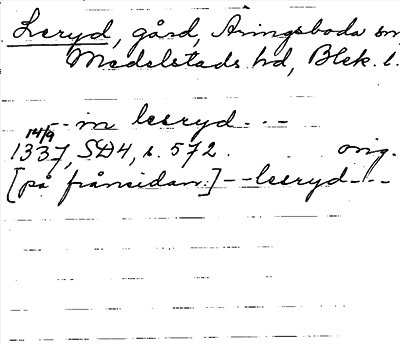 Leryd, gård, Aringsboda sn
Medelstads hd, Blek. l.
-- in leeryd --
14/9
1337, SD4, s. 572. orig.
[på frånsidan:] -- leeryd --